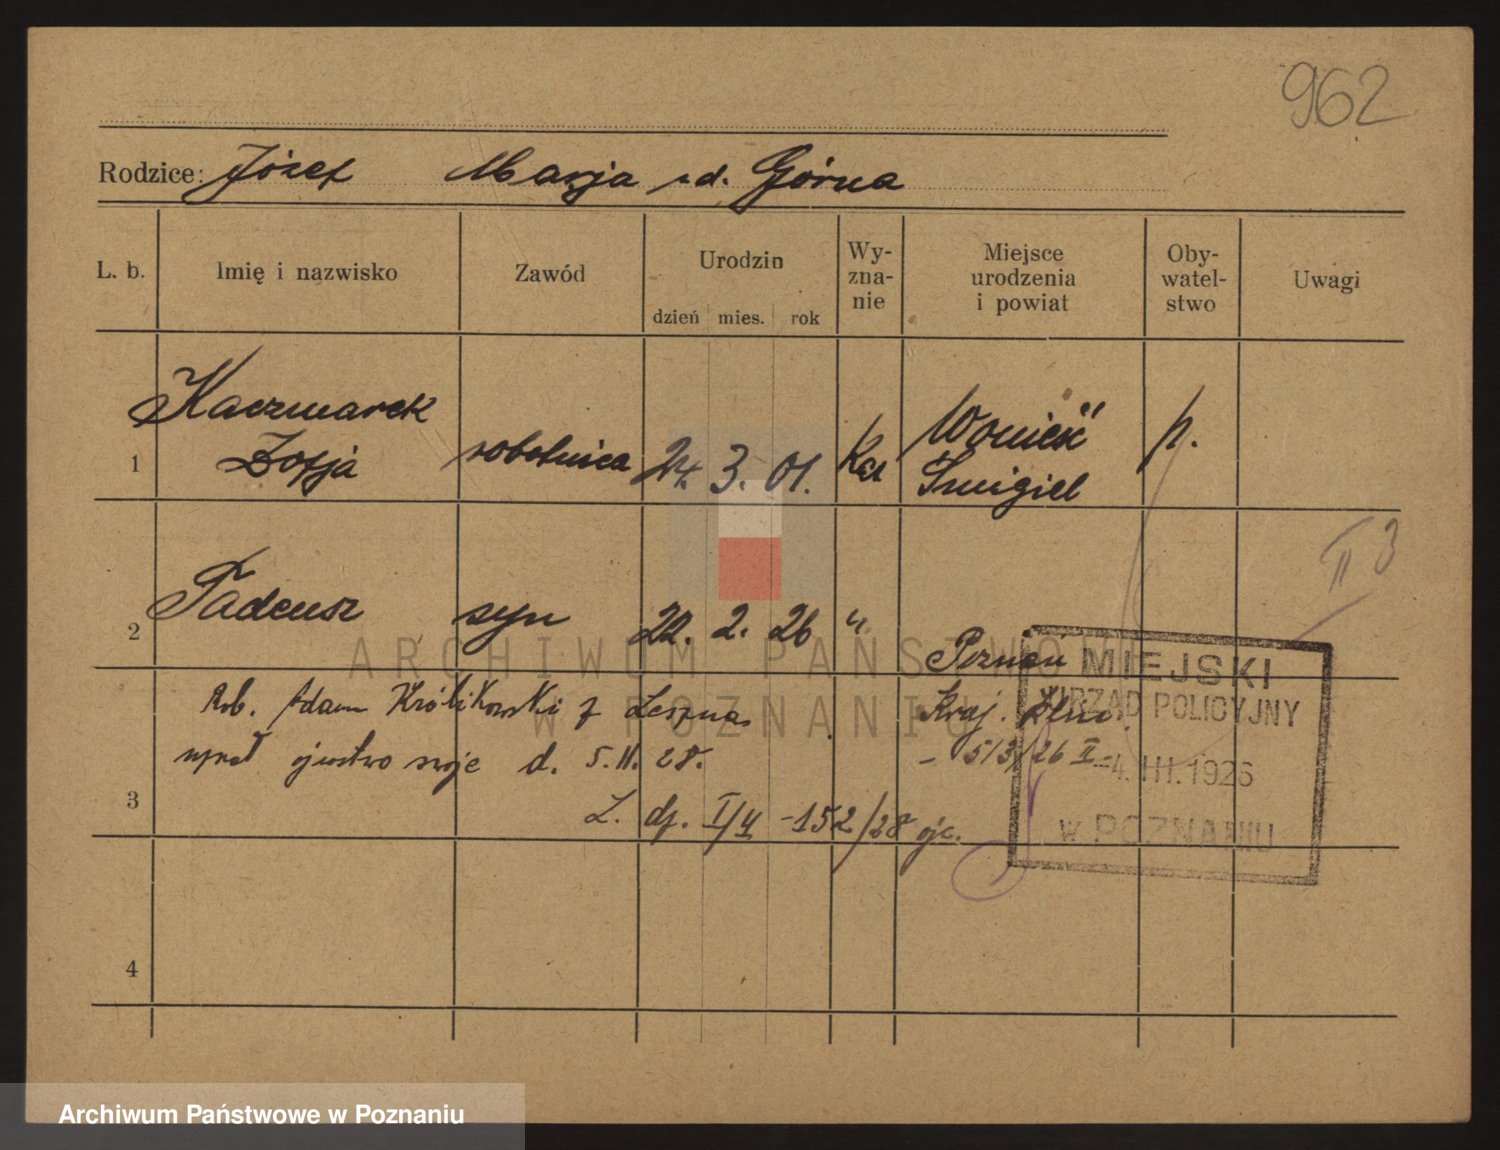 962
Rodzice: Józef Marja z d. Górna
L. b. Imię i nazwisko Zawód Urodzin dzień mies. rok Wy-zna-nie Miejsce urodzenia i powiat Oby-watel-stwo Uwagi
Kaczmarek
1 Zofja robotnica 24. 3. 01. Kat Wonieść Śmigiel p.
II 3
2 Tadeusz syn 22. 2. 26 " Poznań
Rob. Adam Królikowski z Leszna
d. 5.11.28.
Kraj.
513/26 II
3 L. dz. I/4 -152/28 ojc.
4
MIEJSKI
URZĄD POLICYJNY
-4. III. 1926
w POZNANIU
ARCHIWUM PAŃSTWOWE
W POZNANIU
Archiwum Państwowe w Poznaniu